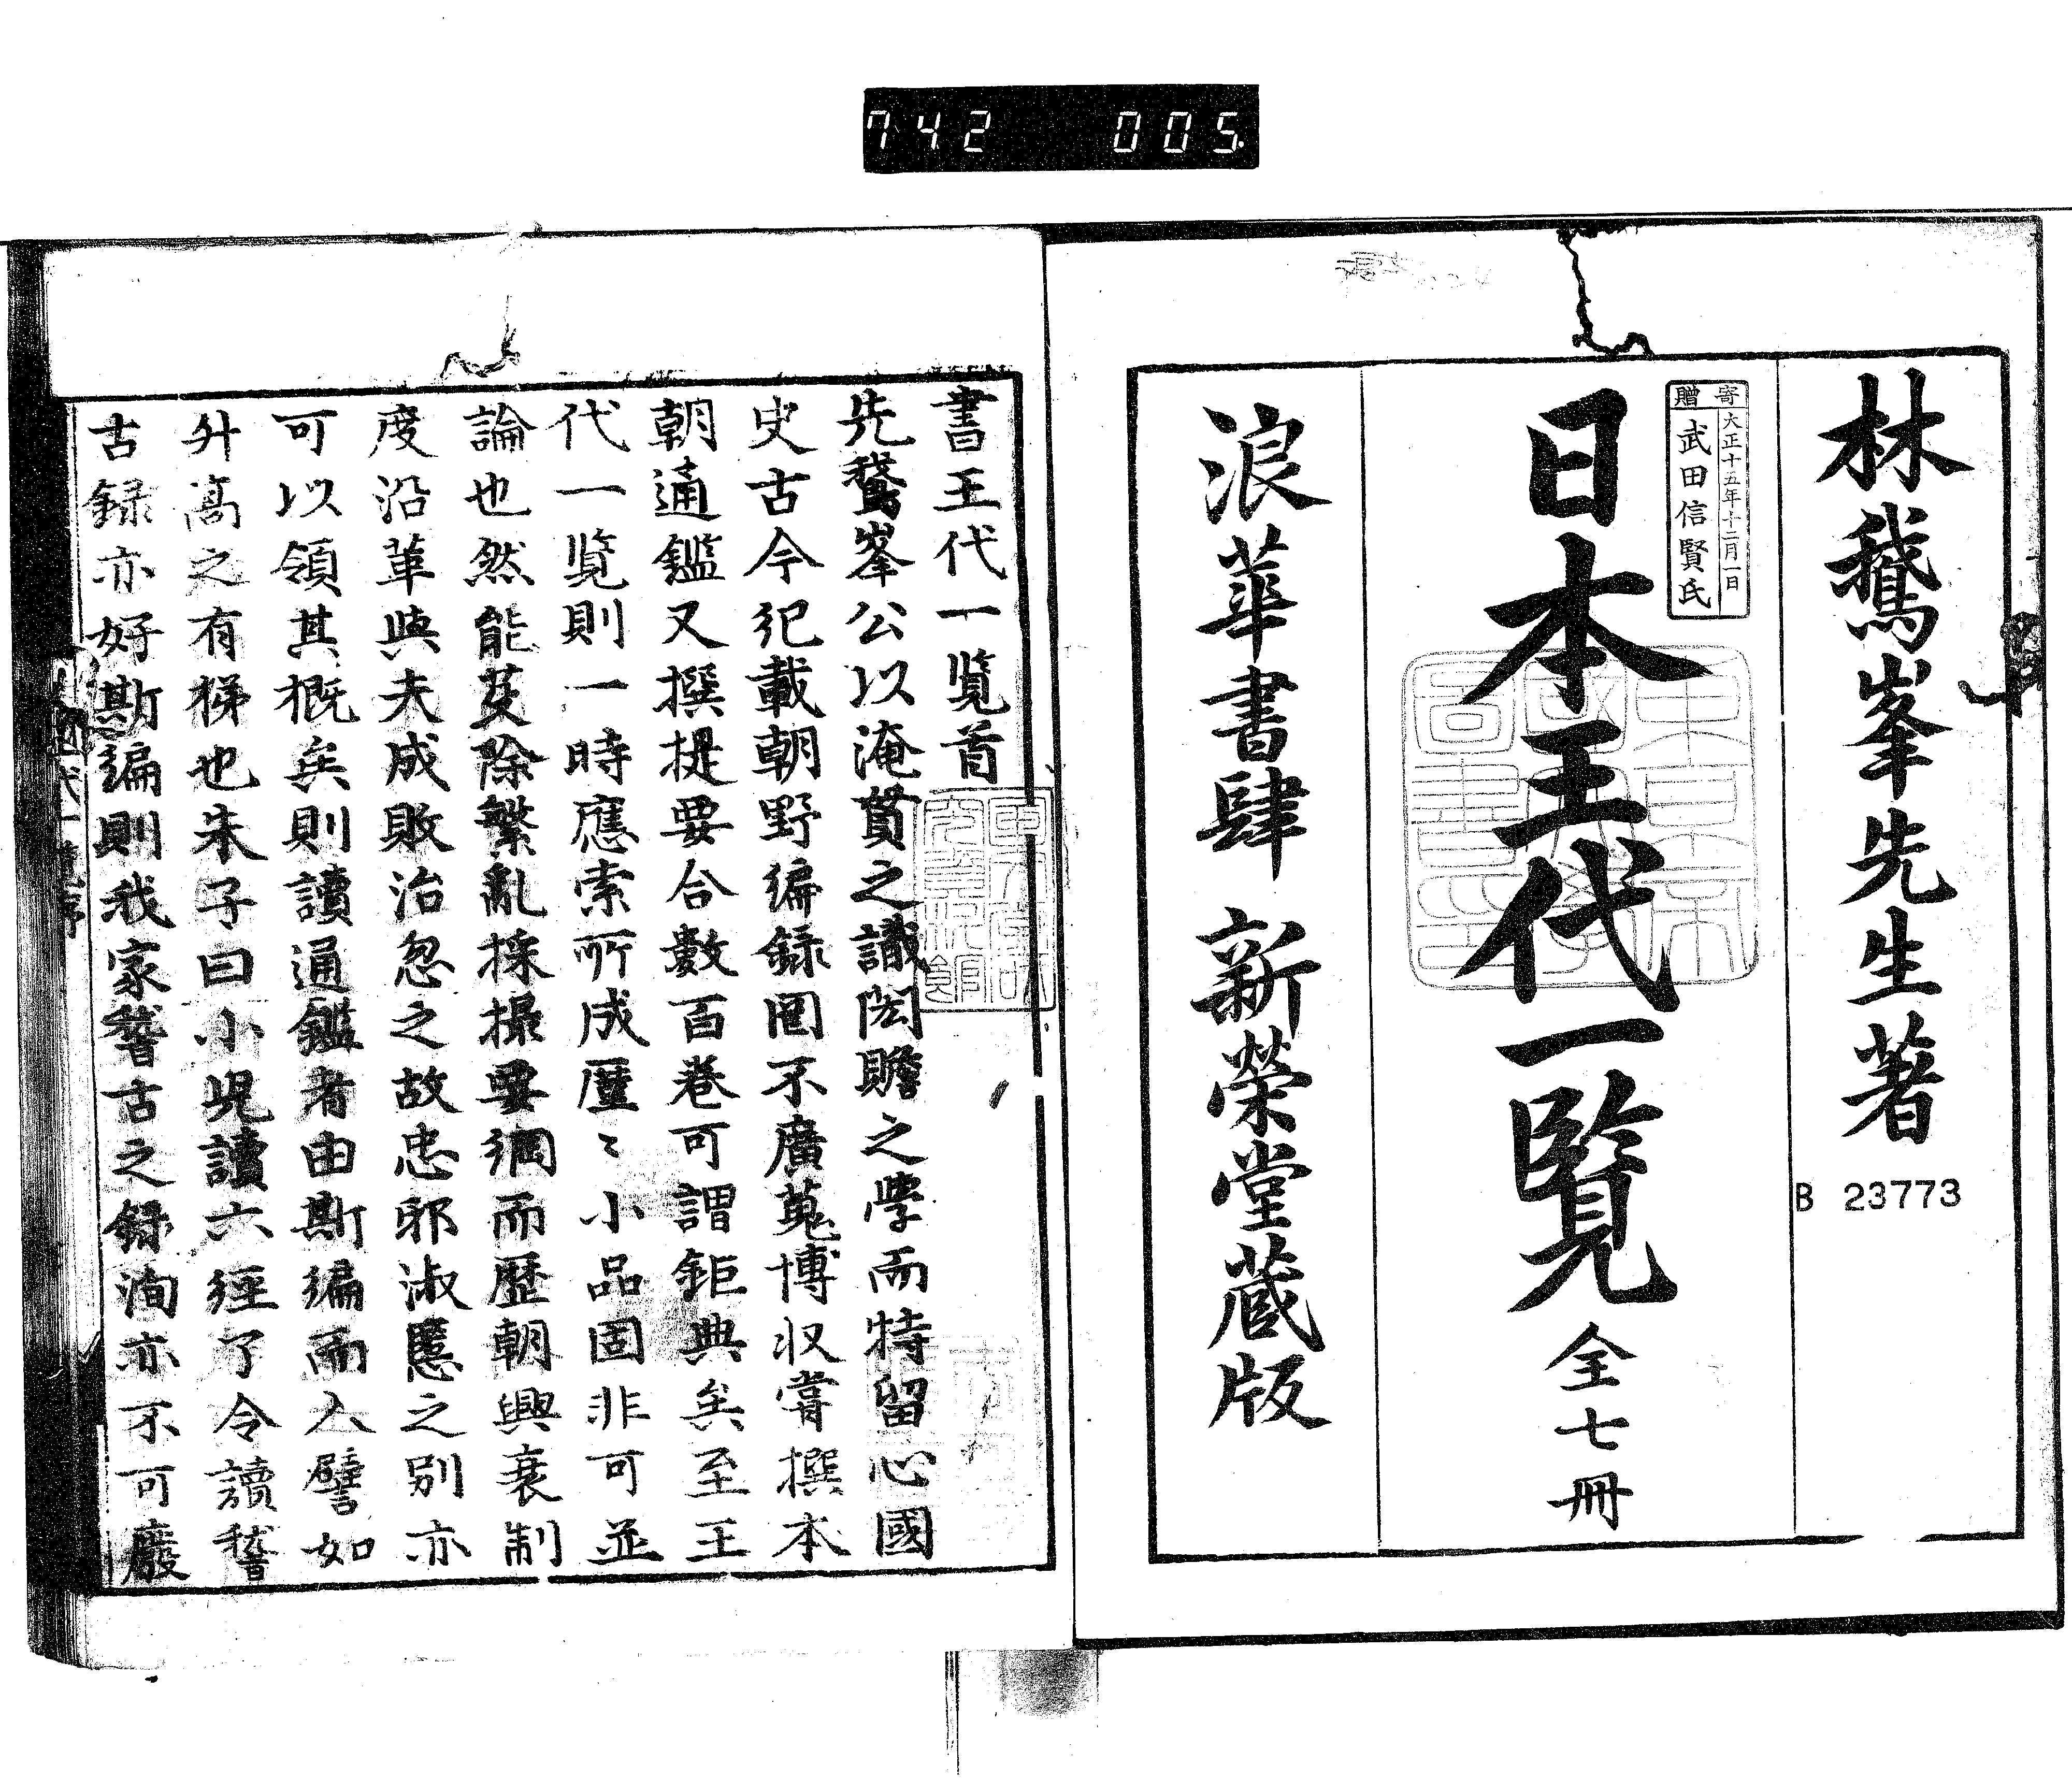 742 005
林鵞峯先生著
B 23773
寄贈
大正十五年十二月一日
武田信賢氏
日本王代一覧 全七冊
浪華書肆 新榮堂蔵版
書王代一覧首
先鵞峯公以淹貫之識閎贍之學而特留心國
史古今紀載朝野編録罔不廣蒐博収嘗撰本
朝通鑑又撰提要合數百卷可謂鉅典矣至王
代一覧則一時應索所成厪〻小品固非可並
論也然能芟除繁亂採撮要綱而歴朝興衰制
度沿革與夫成敗治忽之故忠邪淑慝之別亦
可以領其概矣則讀通鑑者由斯編而入譬如
升高之有梯也朱子曰小児讀六經了令讀稽
古録亦好斯編則我家稽古之録洵亦不可廢